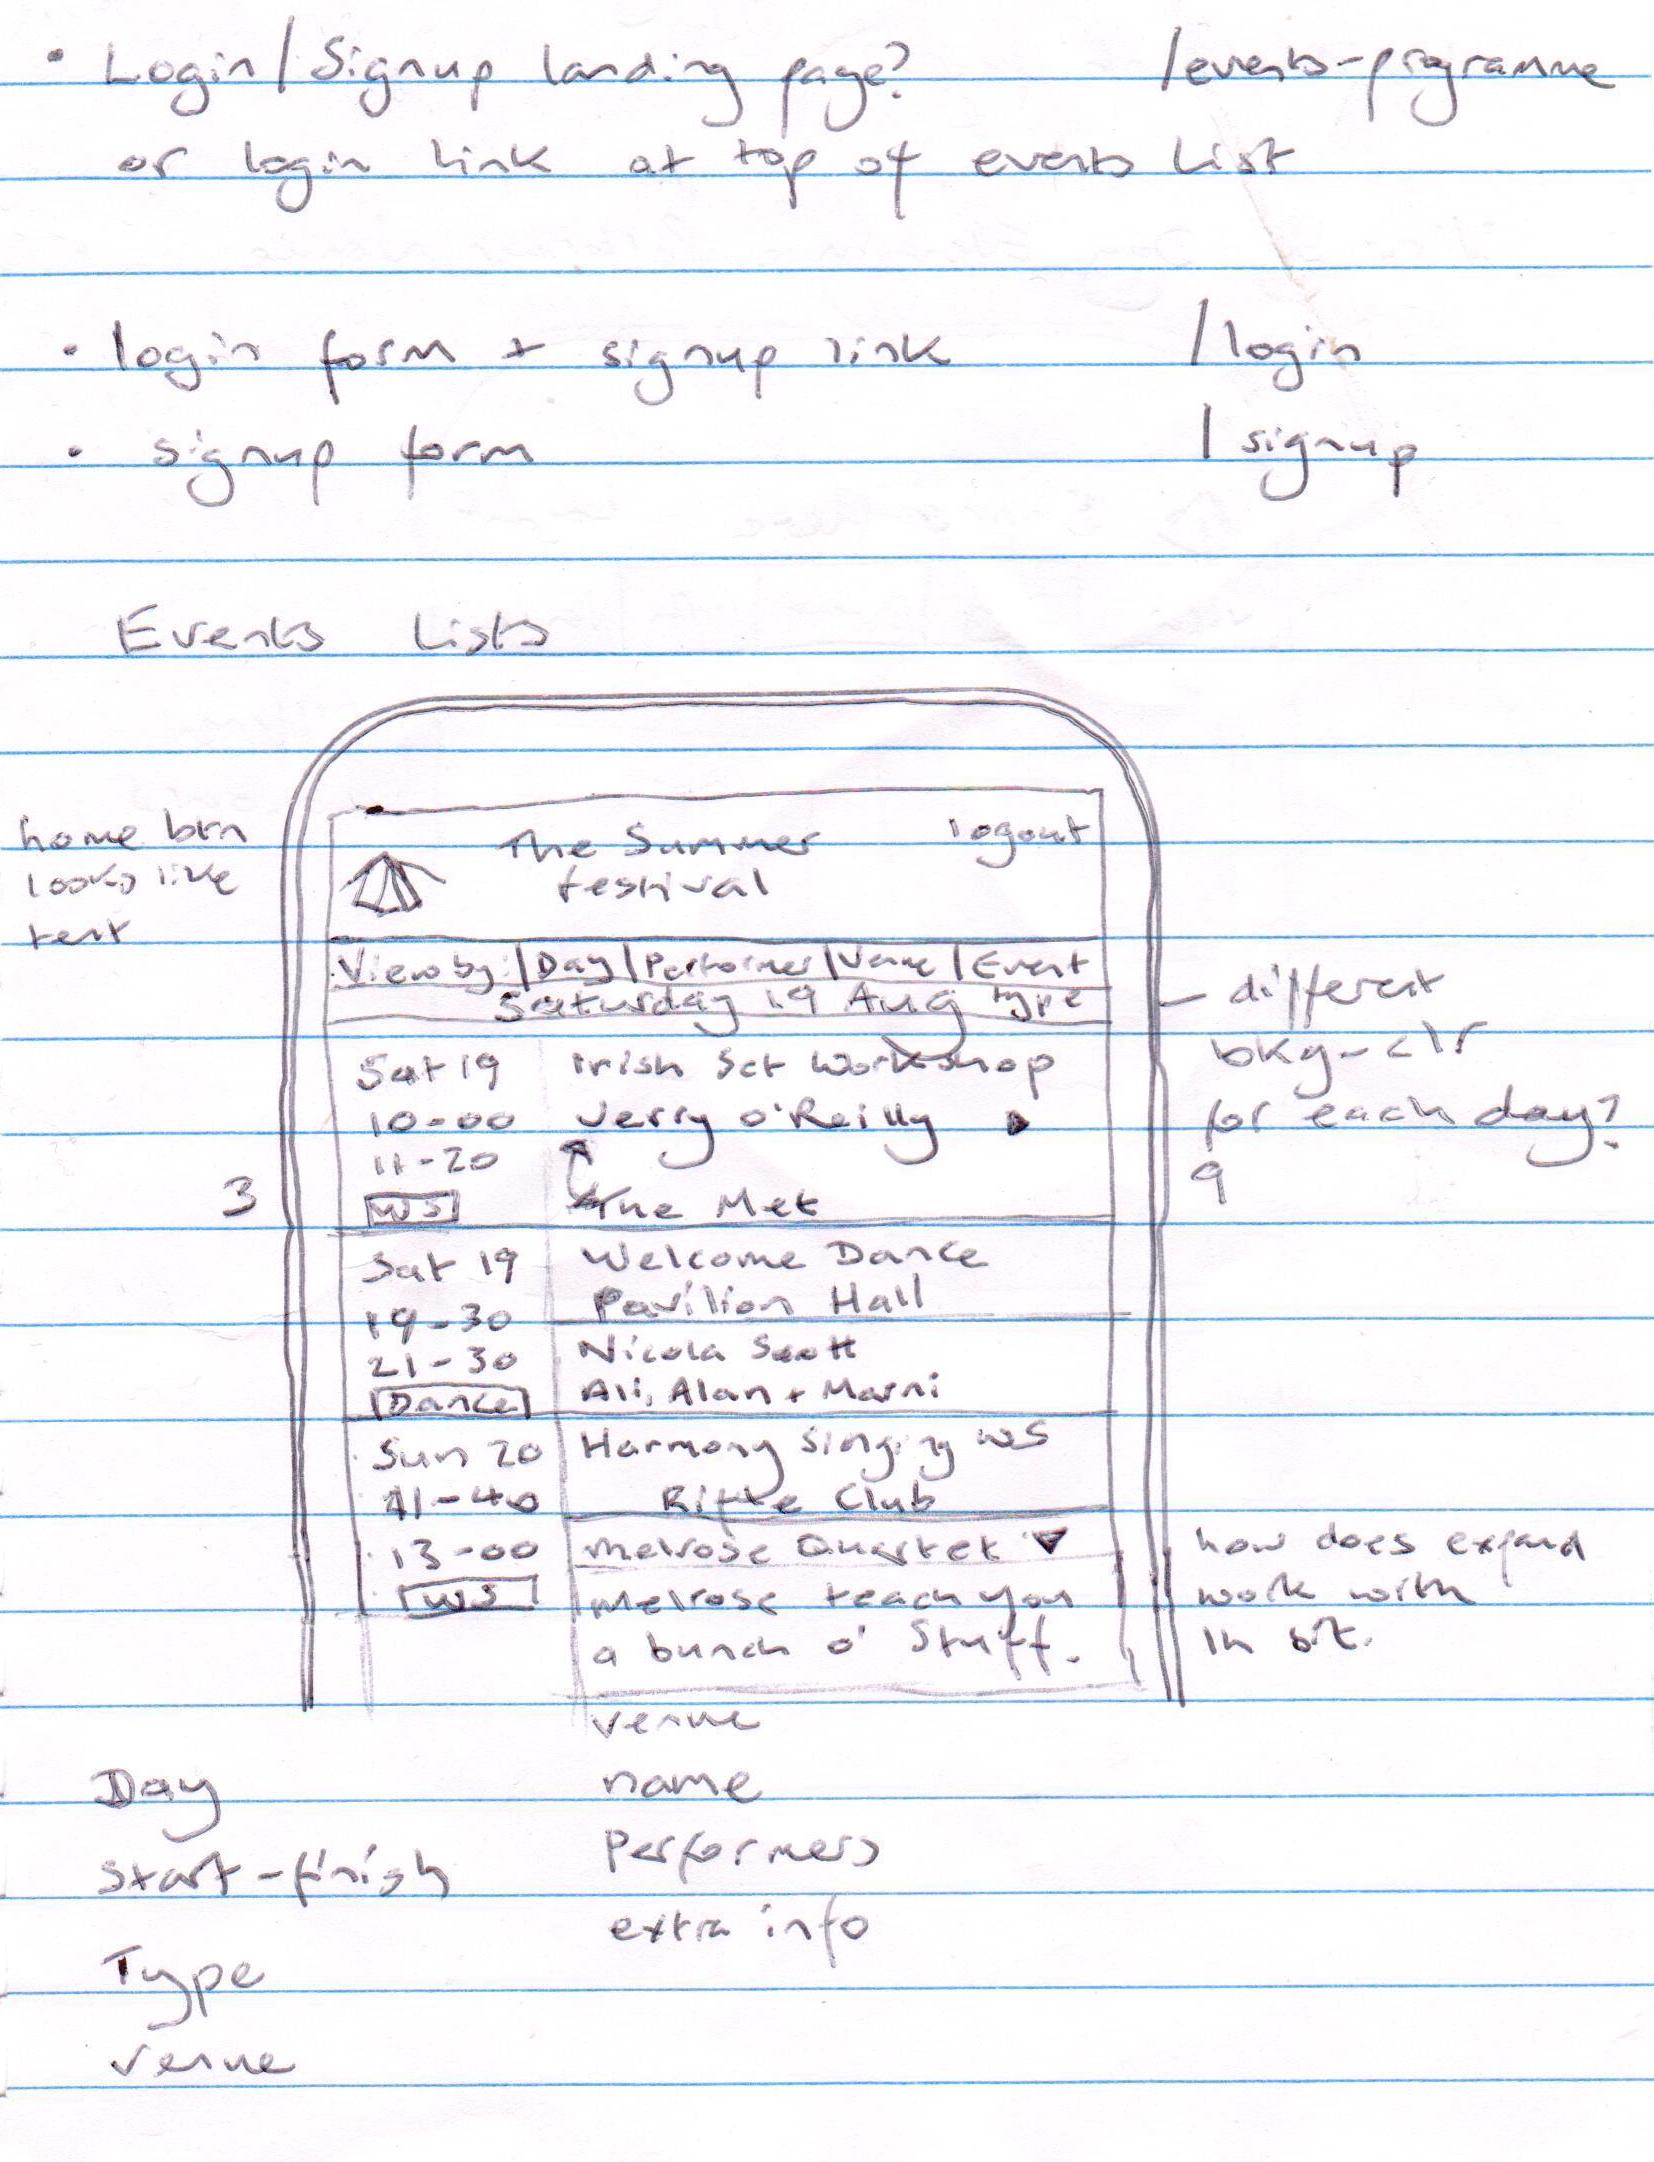 • Login/Signup landing page? /events-programme
or login link at top of events list
• login form + signup link /login
• signup form /signup
Events Lists
home btn
looks like
tent
The Summer
festival
logout
View by: | Day | Performer | Venue | Event
type
Saturday 19 Aug
- different
bkg-clr
for each day?
9
3
Sat 19
10-00
11-20
WS
Irish Set Workshop
Jerry O'Reilly
The Met
Sat 19
19-30
21-30
Dance
Welcome Dance
Pavilion Hall
Nicola Scott
Ali, Alan + Marni
Sun 20
11-40
13-00
WS
Harmony Singing WS
Rifle Club
Melrose Quartet
Melrose teach you
a bunch o' Stuff.
how does expand
work with
venue
name
Performers
extra info
Day
Start-finish
Type
venue